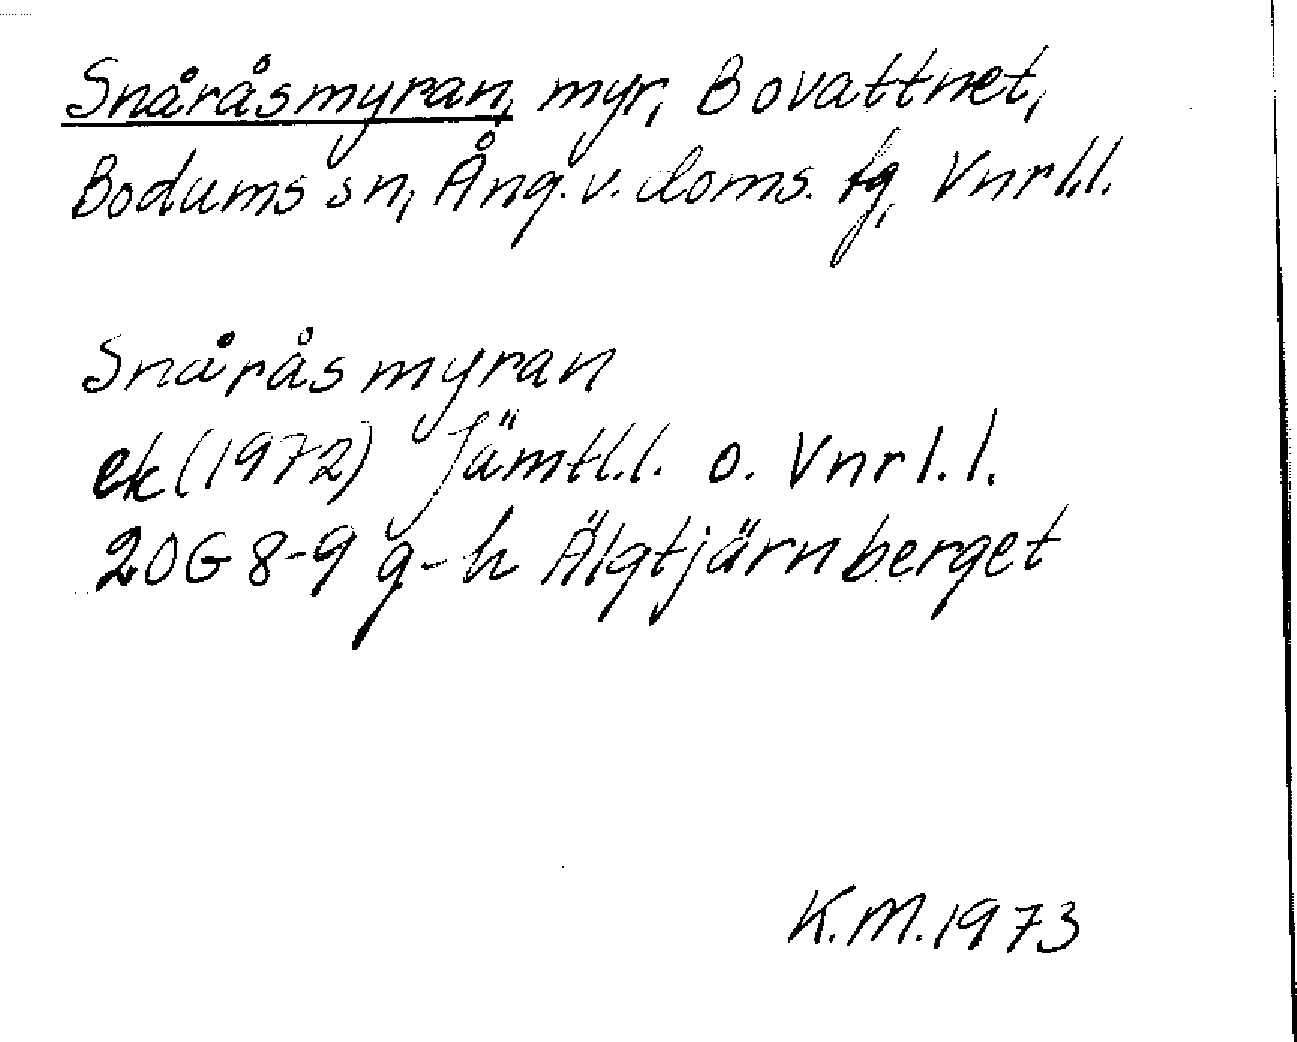 Snåråsmyran, myr, Bovattnet,
Bodums sn, Ång. v. doms. fg, Vnrl.l.
Snåråsmyran
ek (1972) Jämtl.l. o. Vnrl.l.
20G 8-9 g-h Älgtjärnberget
K.M. 1973